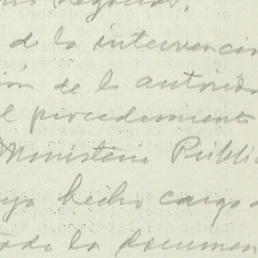 negocios.
de la intervención
ión de la autorid
l procedimiento
Ministerio Públic
ya hecho cargo d
toda la documen